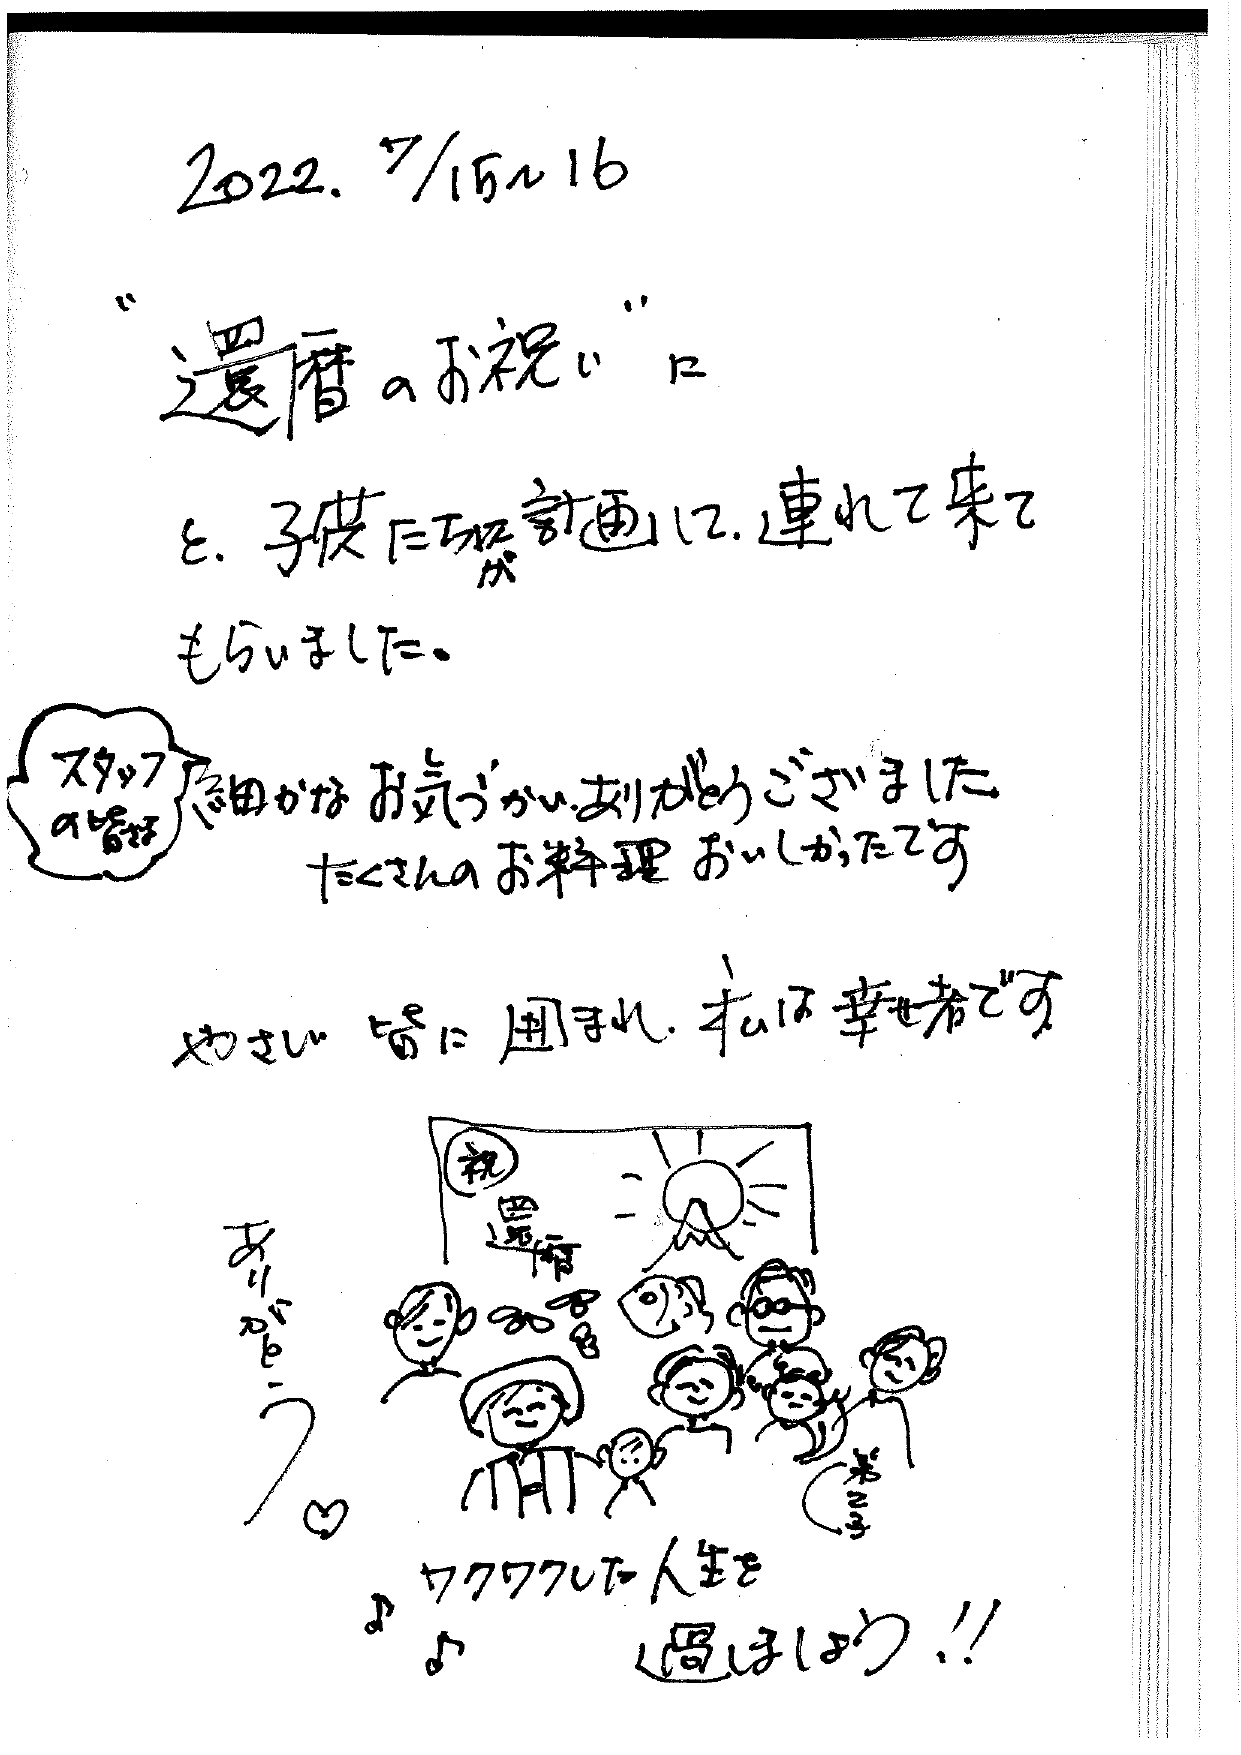 2022. 7/15~16
"還暦のお祝い"に
と、子供たちが計画して、連れて来て
もらいました。
スタッフ
の皆さま
細かなお気づかい、ありがとうございました。
たくさんのお料理 おいしかったです
やさしい 皆に 囲まれ、私は 幸せ者です
祝
還暦
ありがとう
第2子
ワクワクした人生を
過しましょう!!